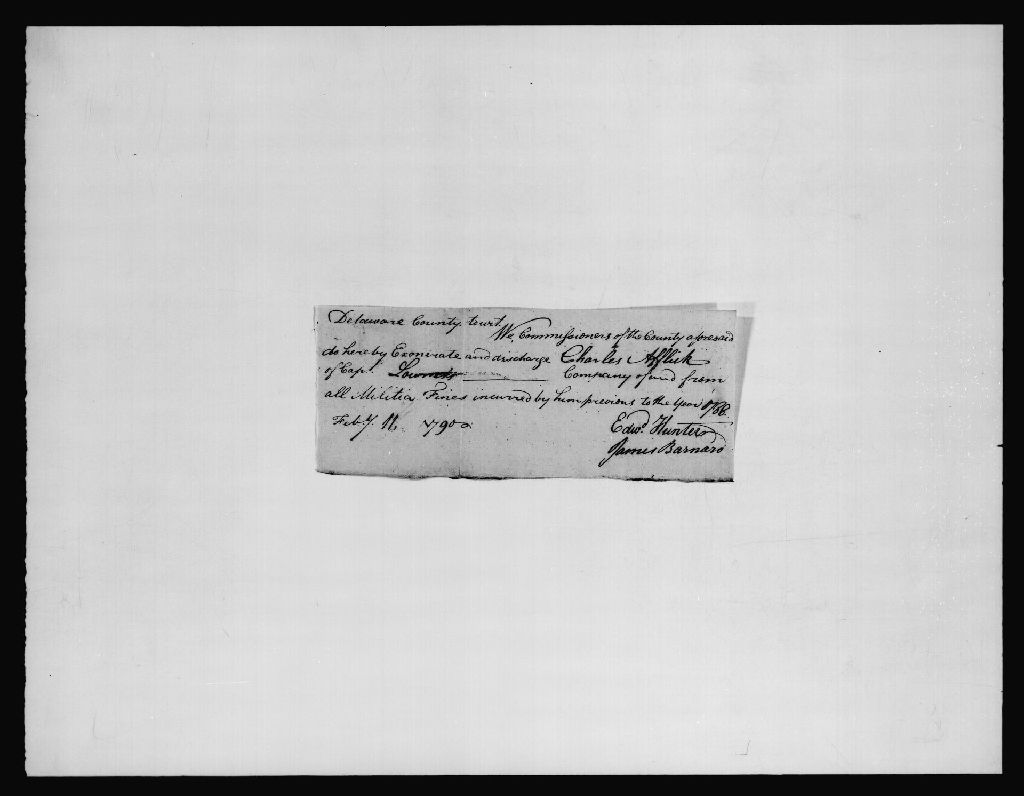 Delaware County to wit
We Commissioners of the County aforesaid
do hereby Exonerate and discharge Charles Afflick
of Capt. Lownes Company of and from
all Militia Fines incurred by him previous to the Year 1788
Feby. 11. 1790 Edwd. Hunter
James Barnard